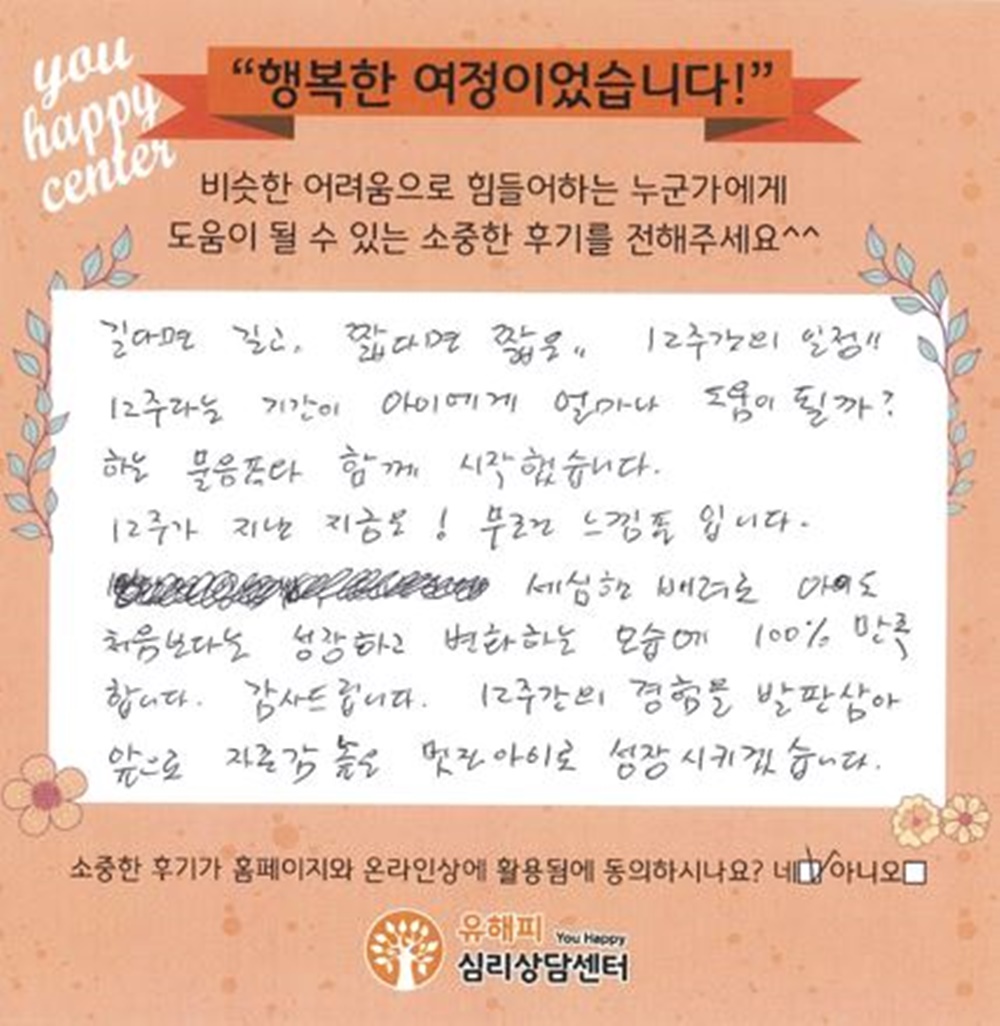 you
happy
center
“행복한 여정이었습니다!”
비슷한 어려움으로 힘들어하는 누군가에게
도움이 될 수 있는 소중한 후기를 전해주세요^^
길다면 길고, 짧다면 짧은,, 12주간의 일정!!
12주라는 기간이 아이에게 얼마나 도움이 될까?
하는 물음표와 함께 시작했습니다.
12주가 지난 지금은! 무조건 느낌표 입니다.
세심한 배려로 아이도
처음보다는 성장하고 변화하는 모습에 100% 만족
합니다. 감사드립니다. 12주간의 경험을 발판삼아
앞으로 자존감 높은 멋진아이로 성장시키겠습니다.
소중한 후기가 홈페이지와 온라인상에 활용됨에 동의하시나요? 네☑ 아니오□
유해피 You Happy
심리상담센터